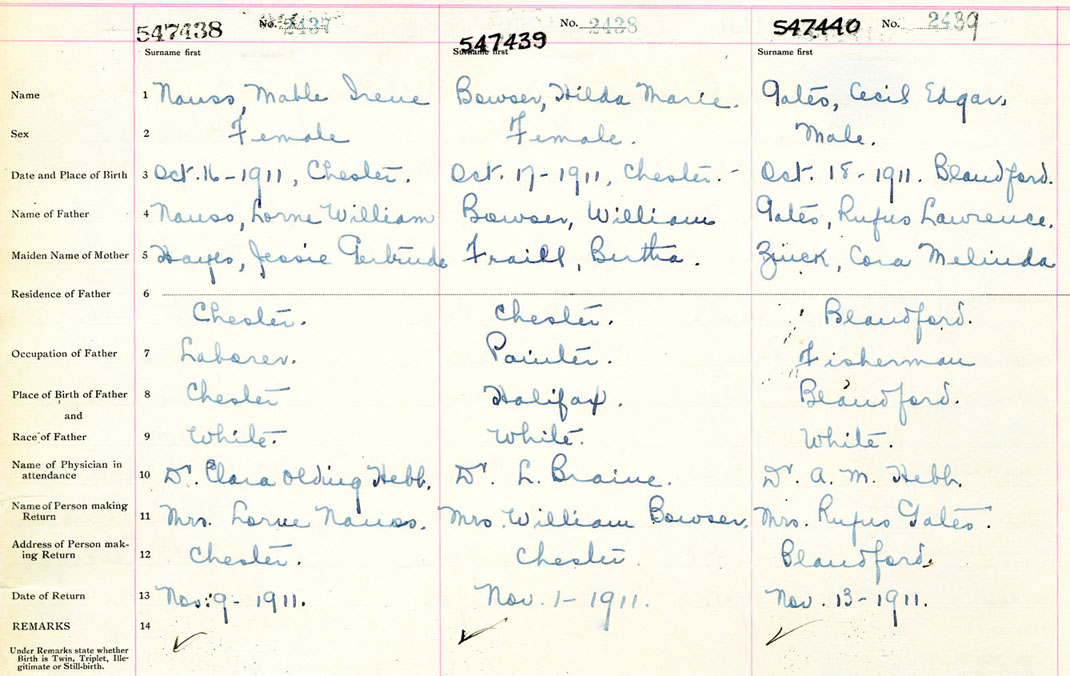 547438 No. 2437 547439 No. 2438 547440 No. 2439
Surname first Surname first Surname first
Name 1 Nauss, Mable Irene Bowser, Hilda Marie. Gates, Cecil Edgar.
Sex 2 Female Female. Male.
Date and Place of Birth 3 Oct. 16-1911, Chester. Oct. 17-1911, Chester.- Oct. 18-1911. Blandford.
Name of Father 4 Nauss, Lorne William Bowser, William Gates, Rufus Lawrence.
Maiden Name of Mother 5 Hayes, Jessie Gertrude Fraill, Bertha. Zinck, Cora Melinda
Residence of Father 6
Chester. Chester. Blandford.
Occupation of Father 7 Laborer. Painter. Fisherman
Place of Birth of Father 8 Chester Halifax. Blandford.
and
Race of Father 9 White. White. White.
Name of Physician in
attendance 10 Dr. Clara Olding Hebb. Dr. L. Braine. Dr. A. M. Hebb.
Name of Person making
Return 11 Mrs. Lorne Nauss. Mrs. William Bowser. Mrs. Rufus Gates.
Address of Person mak-
ing Return 12 Chester. Chester. Blandford.
Date of Return 13 Nov. 9-1911. Nov. 1-1911. Nov. 13-1911.
REMARKS 14
Under Remarks state whether
Birth is Twin, Triplet, Ille-
gitimate or Still-birth.